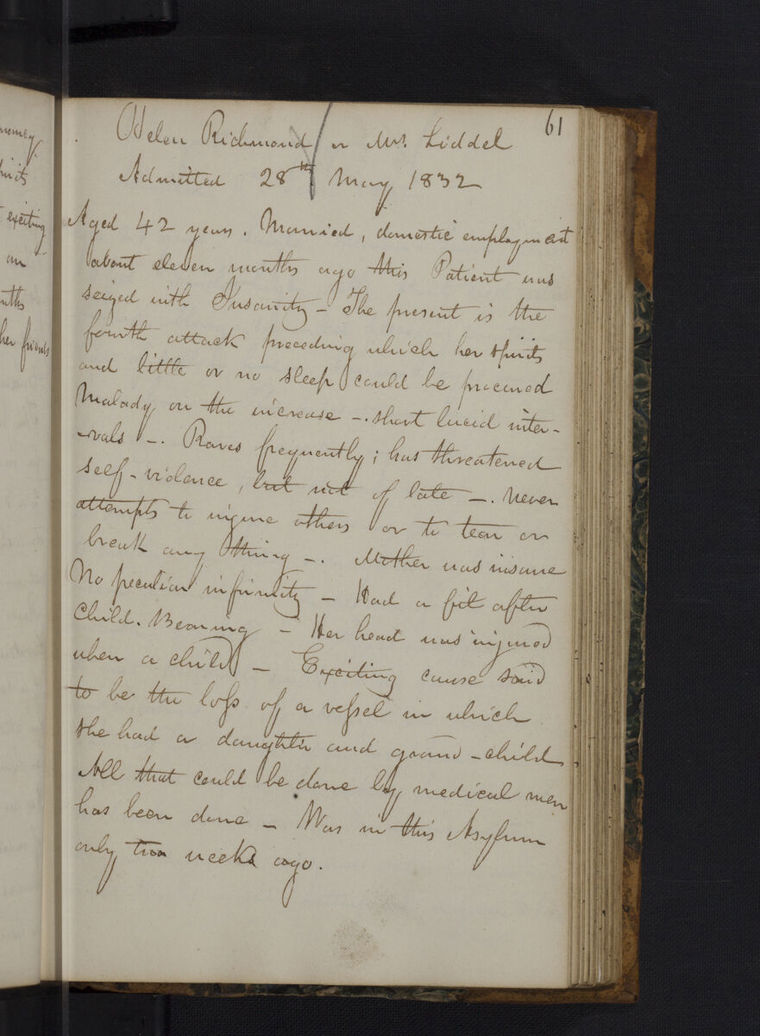 61
Helen Richmond or Mrs. Liddel
Admitted 28th May 1832
Aged 42 years. Married, domestic employment
about eleven months ago this Patient was
seized with Insanity – The present is the
fourth attack preceding which her spirits
and little or no sleep could be procured
Malady on the increase –. short lucid inter-
-vals –. Raves frequently; has threatened
self-violence, but not of late –. Never
attempts to injure others or to tear or
break any thing –. Mother was insane
No peculiar infirmity – Had a fit after
Child-Bearing – Her head was injured
when a child – Exciting cause said
to be the loss of a vessel in which
she had a daughter and grand-child.
All that could be done by medical men
has been done – Was in this Asylum
only two weeks ago.
exciting
an
her friends